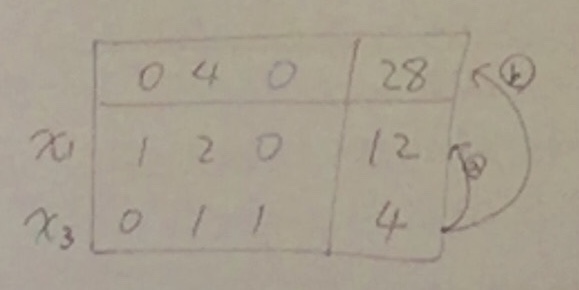 0 4 0 28
x₁ 1 2 0 12
x₃ 0 1 1 4